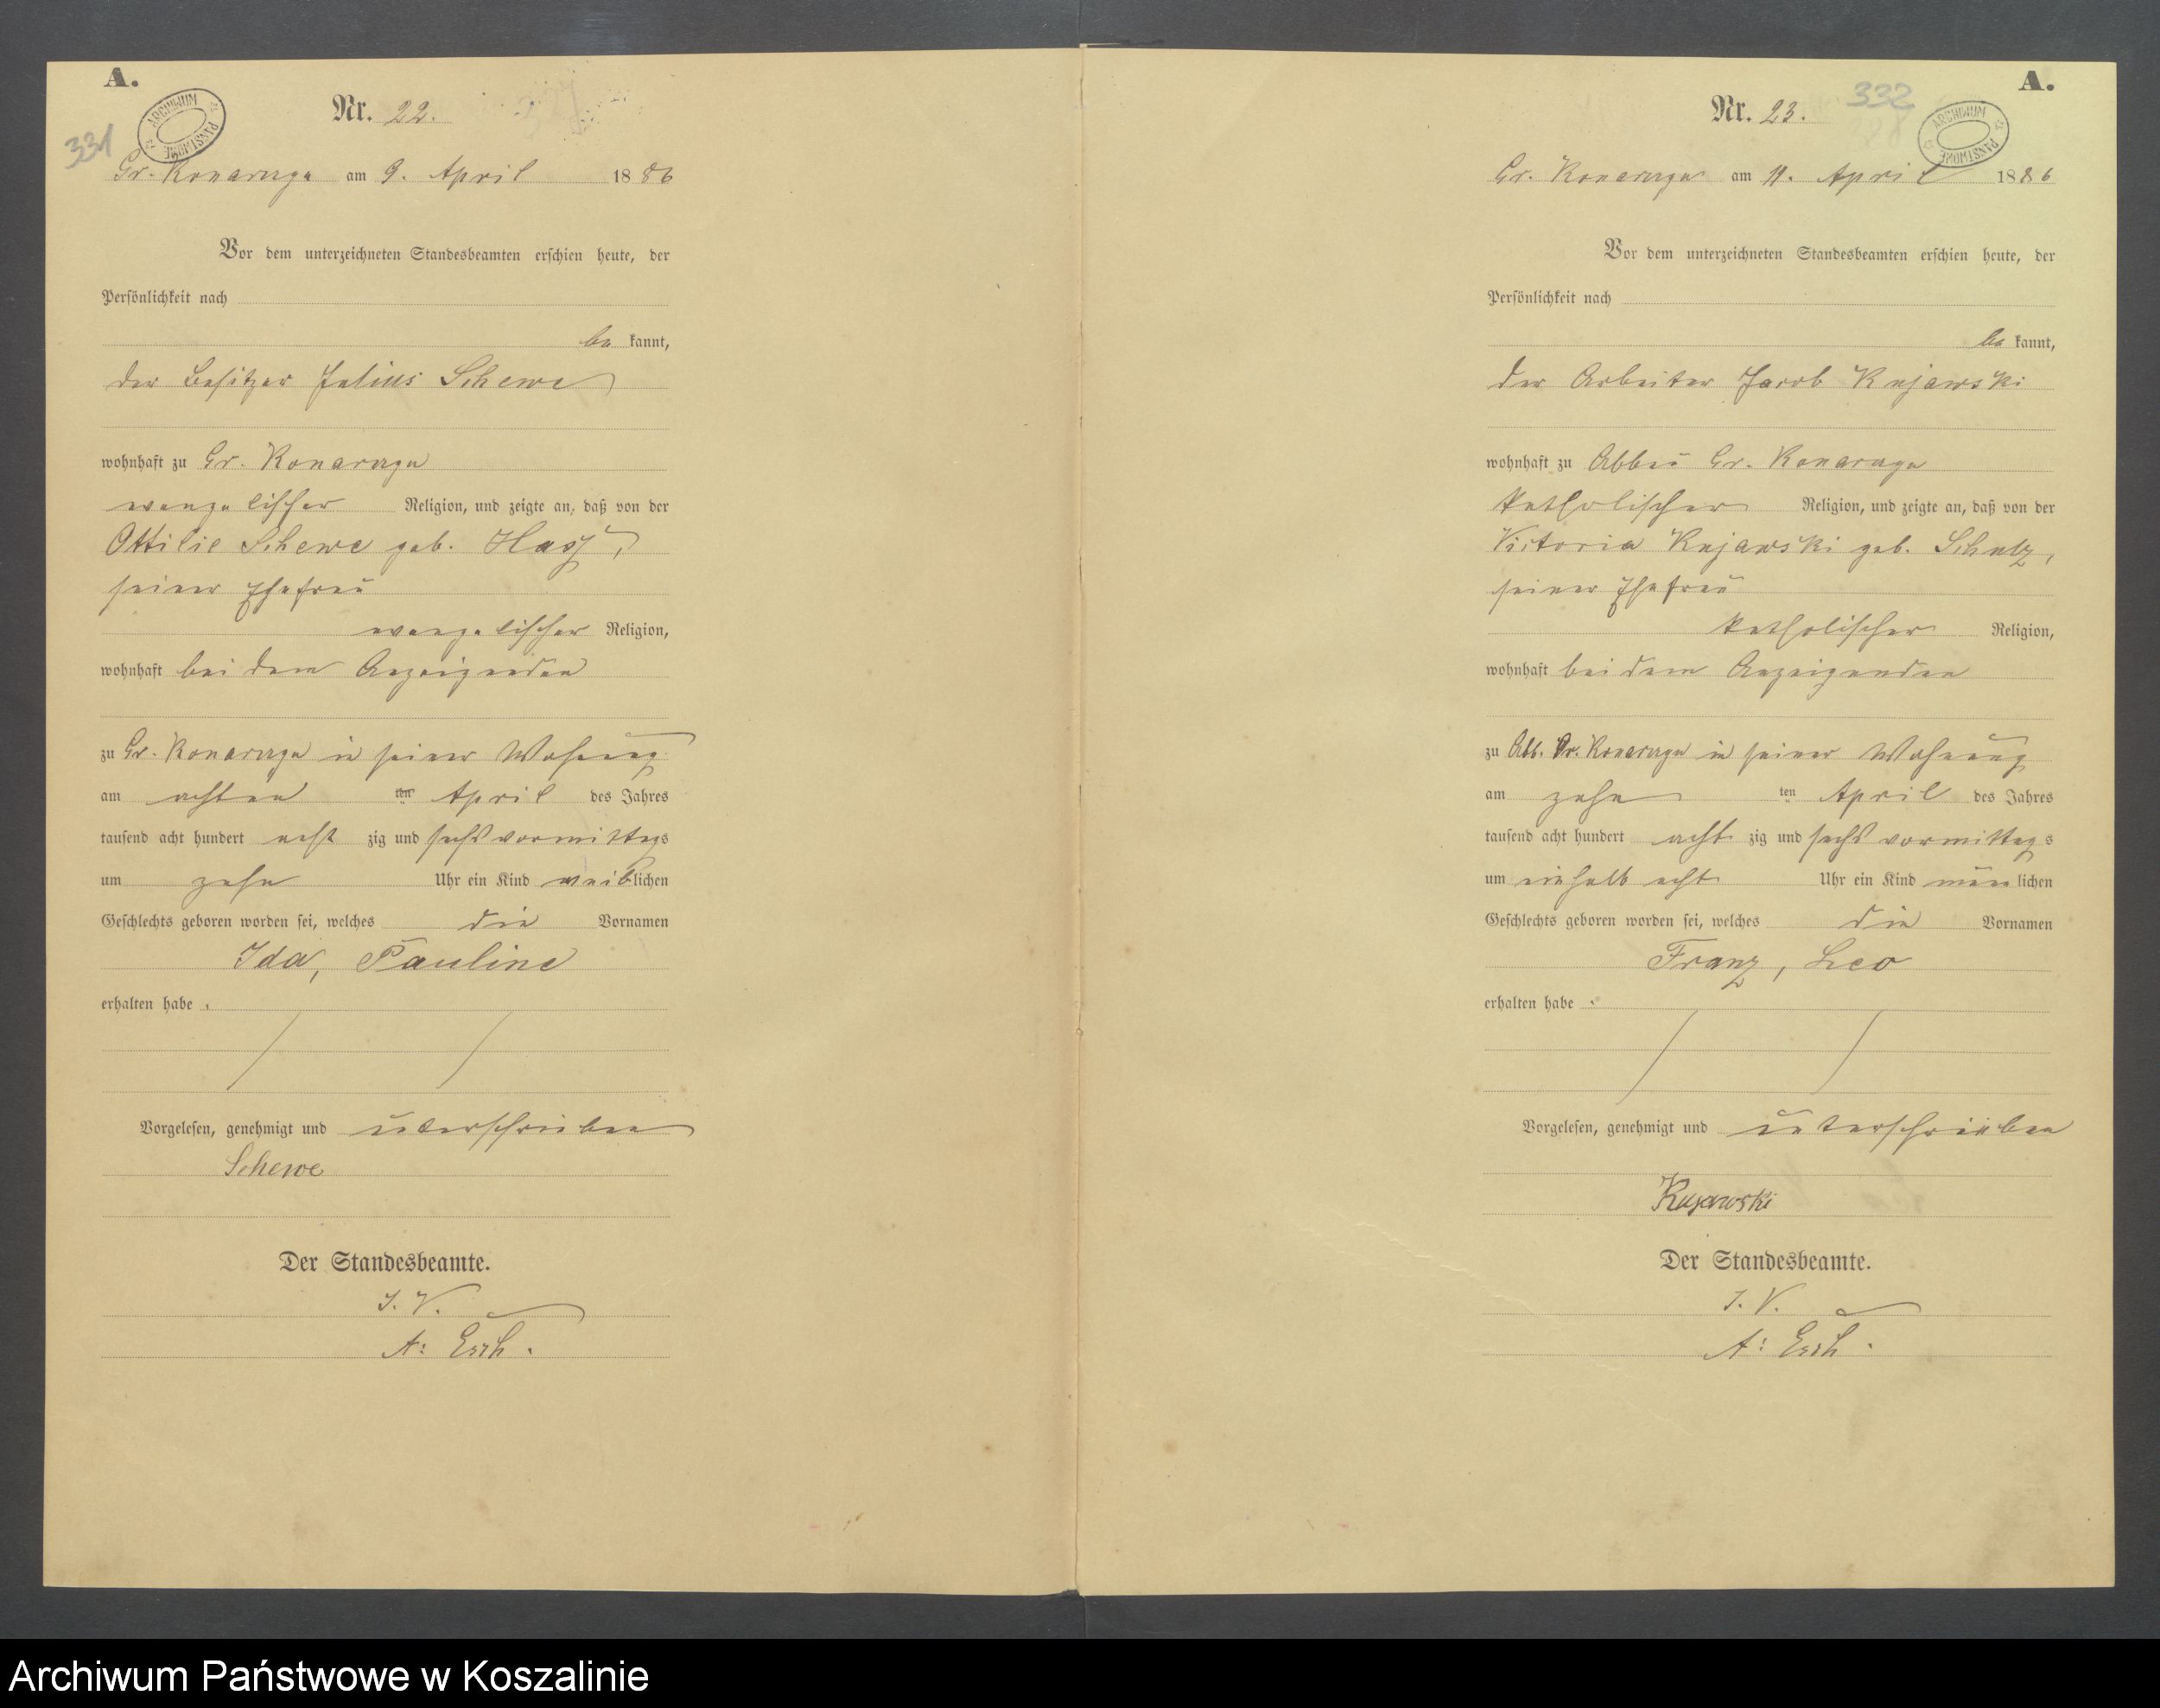 A.
ARCHIWUM PAŃSTWOWE
331
Nr. 22.
Gr. Konarzyn am 9. April 1886
Vor dem unterzeichneten Standesbeamten erschien heute, der
Persönlichkeit nach
be kannt,
der Besitzer Julius Schewe
wohnhaft zu Gr. Konarzyn
evangelischer Religion, und zeigte an, daß von der
Ottilie Schewe geb.
seiner Ehefrau
evangelischer Religion,
wohnhaft bei dem Anzeigenden
zu Gr. Konarzyn in seiner Wohnung
am achten ten April des Jahres
tausend acht hundert acht zig und sechs vormittags
um zehn Uhr ein Kind weiblichen
Geschlechts geboren worden sei, welches die Vornamen
Ida, Pauline
erhalten habe.
Vorgelesen, genehmigt und unterschrieben
Schewe
Der Standesbeamte.
I. V.
A: Esch.
A.
332
ARCHIWUM PAŃSTWOWE
Nr. 23.
Gr. Konarzyn am 11. April 1886
Vor dem unterzeichneten Standesbeamten erschien heute, der
Persönlichkeit nach
be kannt,
der Arbeiter Jacob Kujawski
wohnhaft zu Abbau Gr. Konarzyn
katholischer Religion, und zeigte an, daß von der
Victoria Kujawski geb. Schulz,
seiner Ehefrau
katholischer Religion,
wohnhaft bei dem Anzeigenden
zu Abb. Gr. Konarzyn in seiner Wohnung
am zehn ten April des Jahres
tausend acht hundert acht zig und sechs vormittags
um einhalb acht Uhr ein Kind män̄lichen
Geschlechts geboren worden sei, welches die Vornamen
Franz, Leo
erhalten habe.
Vorgelesen, genehmigt und unterschrieben
Kujawski
Der Standesbeamte.
I. V.
A: Esch.
Archiwum Państwowe w Koszalinie